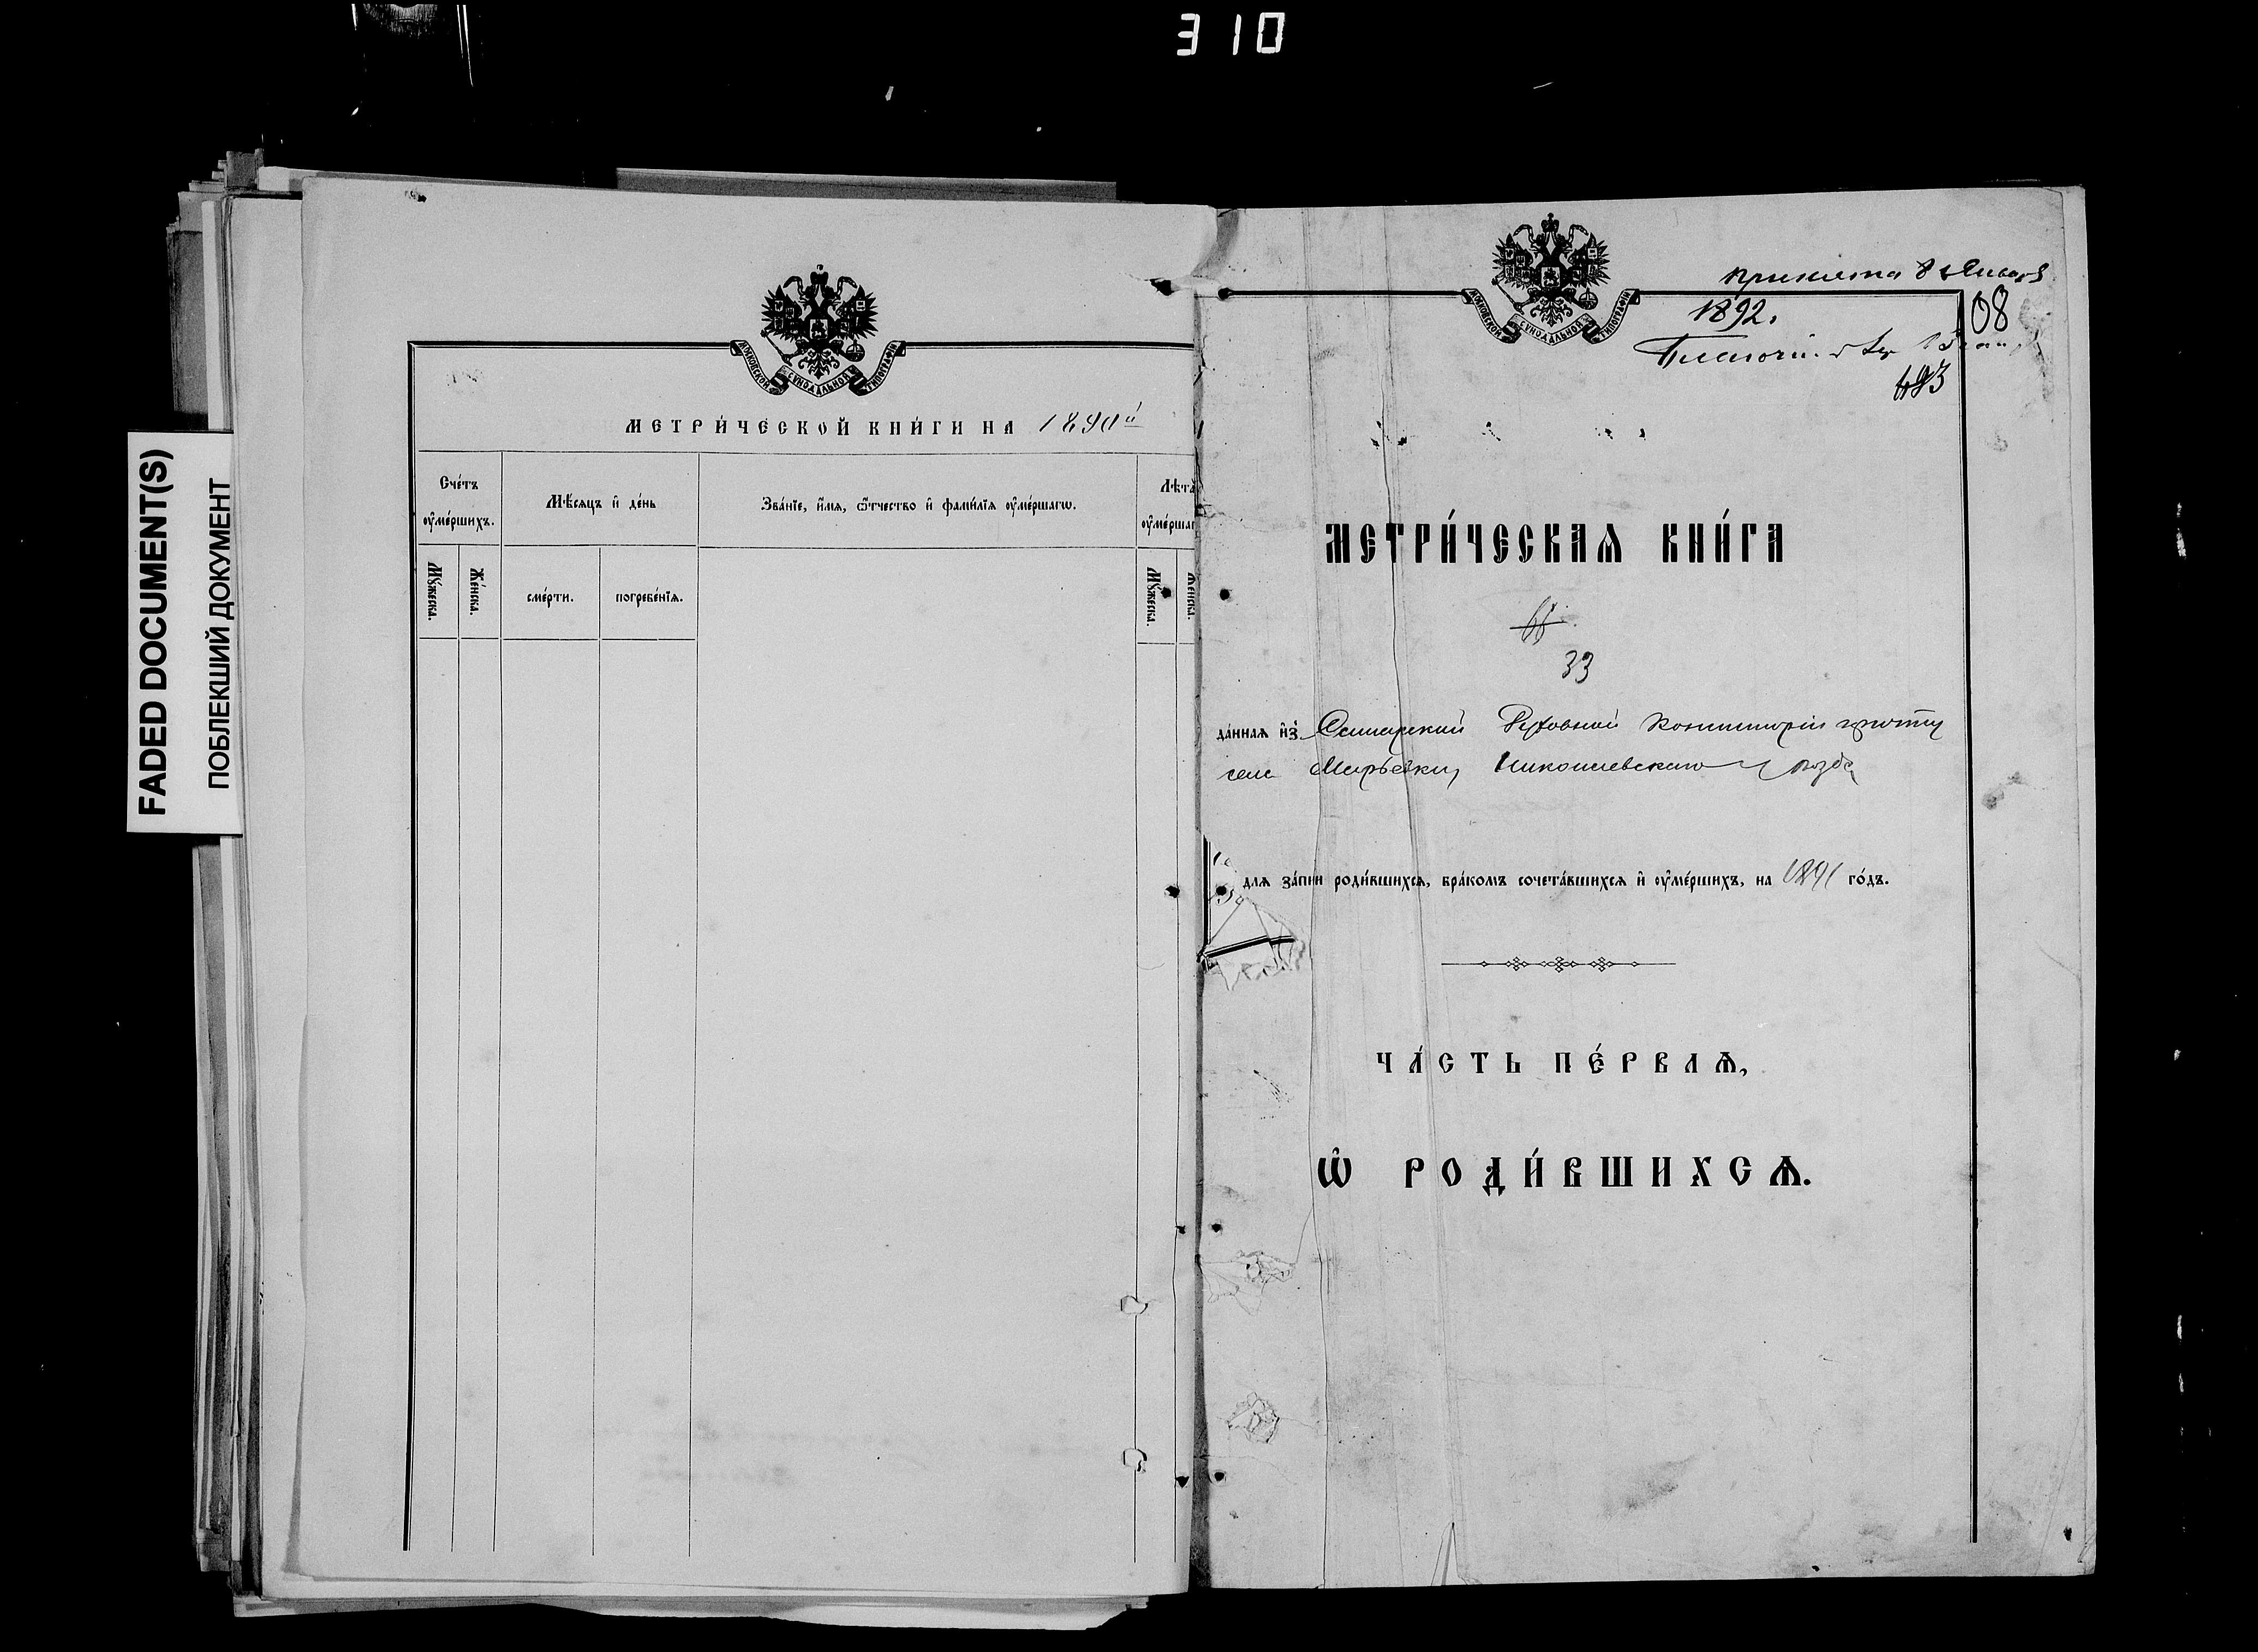 310
FADED DOCUMENT(S)
ПОБЛЕКШИЙ ДОКУМЕНТ
МОСКОВСКОЙ СѴНОДАЛЬНОЙ ТИПОГРАФІИ
МЕТРИ́ЧЕСКОЙ КНИ́ГИ НА
Сче́тъ ᲂу҆ме́ршихъ.
Мѣ́сяцъ и҆ де́нь
Зва́нїе, и҆́мѧ, ѻ҆́тчество и҆ фами́лїѧ ᲂу҆ме́ршагѡ.
Лѣта
Мꙋ́жеска.
Же́нска.
сме́рти.
погребе́нїѧ.
Мꙋ́жеска.
Же́нска.
принята 8 Января
1892.
08
МОСКОВСКОЙ СѴНОДАЛЬНОЙ ТИПОГРАФІИ
МЕТРИ́ЧЕСКАѦ КНИ́ГА
33
да́ннаѧ и҆з̾ Самарской Духовной Консисторіи причту
села Марьевки, Николаевскаго уѣзда
длѧ за́писи роди́вшихсѧ, бра́комъ сочета́вшихсѧ и҆ ᲂу҆ме́ршихъ, на 1891 го́дъ.
ЧА́СТЬ ПЕ́РВАѦ,
Ѡ҆ РОДИ́ВШИХСѦ.